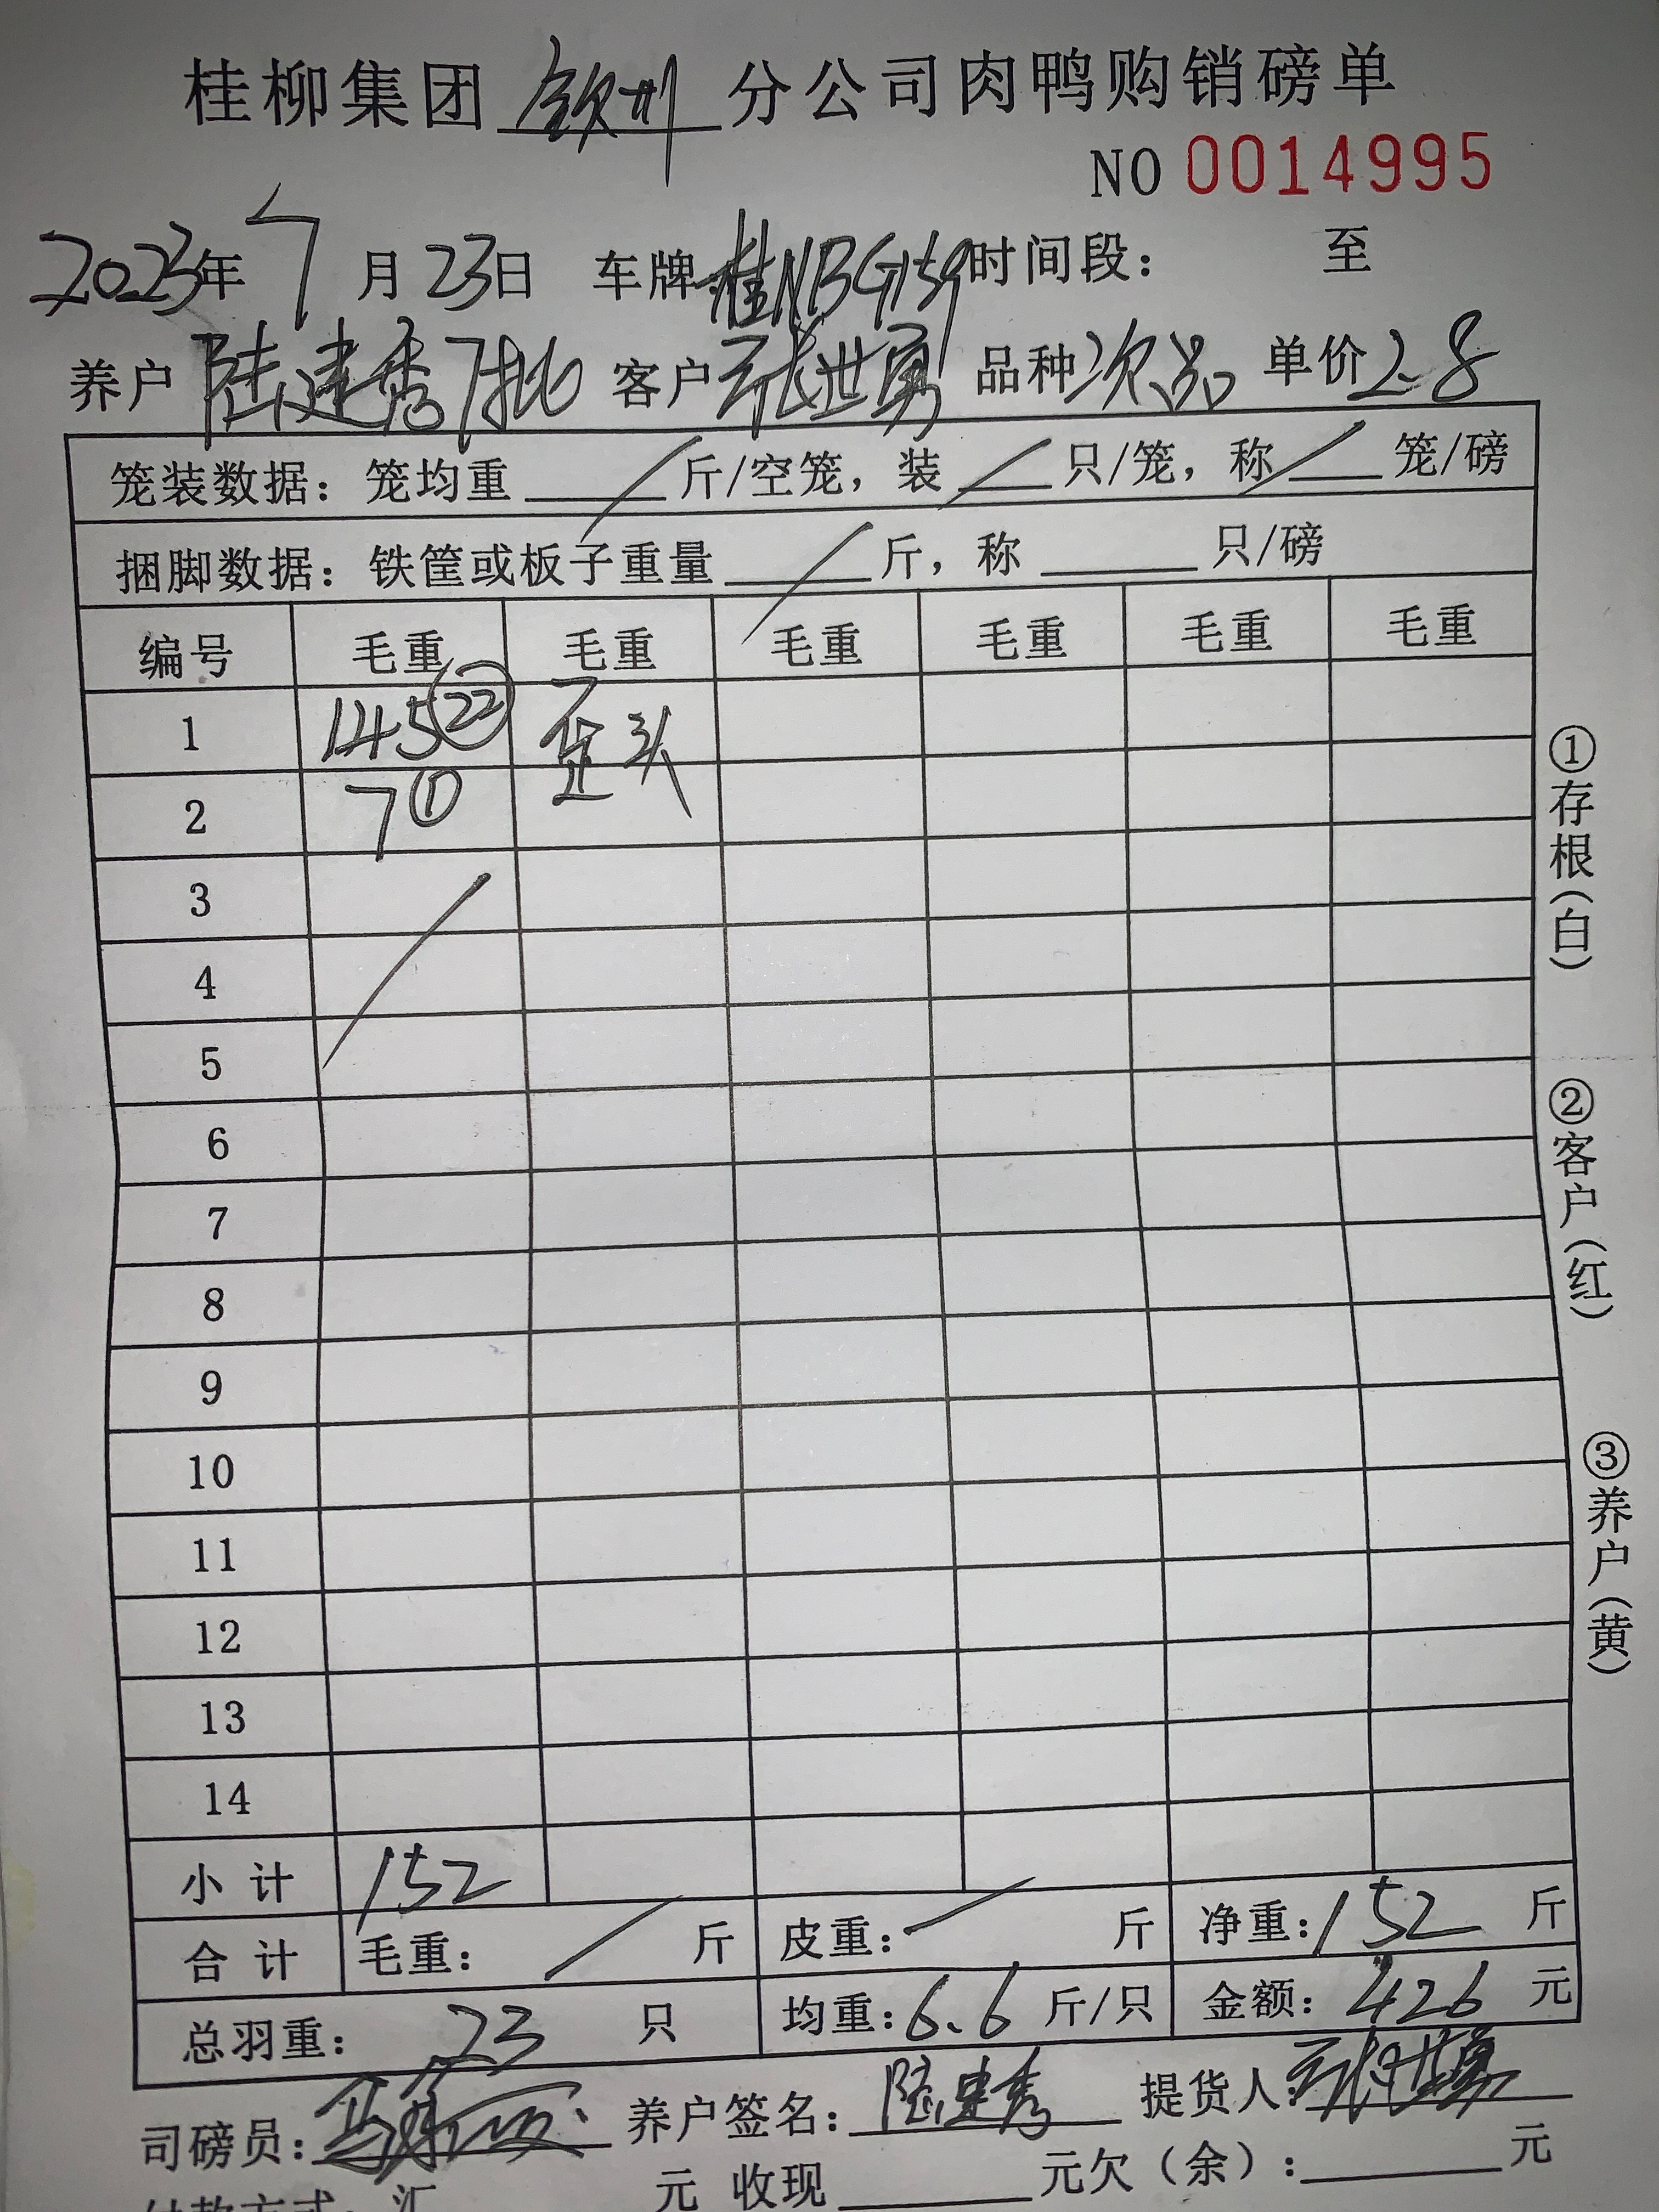 桂柳集团 钦州 分公司肉鸭购销磅单
NO 0014995
2023年 7 月 23日 车牌 桂NBG159 时间段： 至
养户 陆建秀7批 客户 张世勇 品种 次品 单价 2.8
笼装数据：笼均重 / 斤/空笼，装 / 只/笼，称 / 笼/磅
捆脚数据：铁筐或板子重量 / 斤，称 只/磅
编号 毛重 毛重 毛重 毛重 毛重 毛重
1 145 ㉒ 歪头
2 7 ①
3
4
5
6
7
8
9
10
11
12
13
14
小计 152
合计 毛重： / 斤 皮重： / 斤 净重：152 斤
总羽重： 23 只 均重：6.6 斤/只 金额：426 元
司磅员： 养户签名：陆建秀 提货人：张世勇
付款方式：汇 元 收现 元欠（余）： 元
①存根（白）
②客户（红）
③养户（黄）